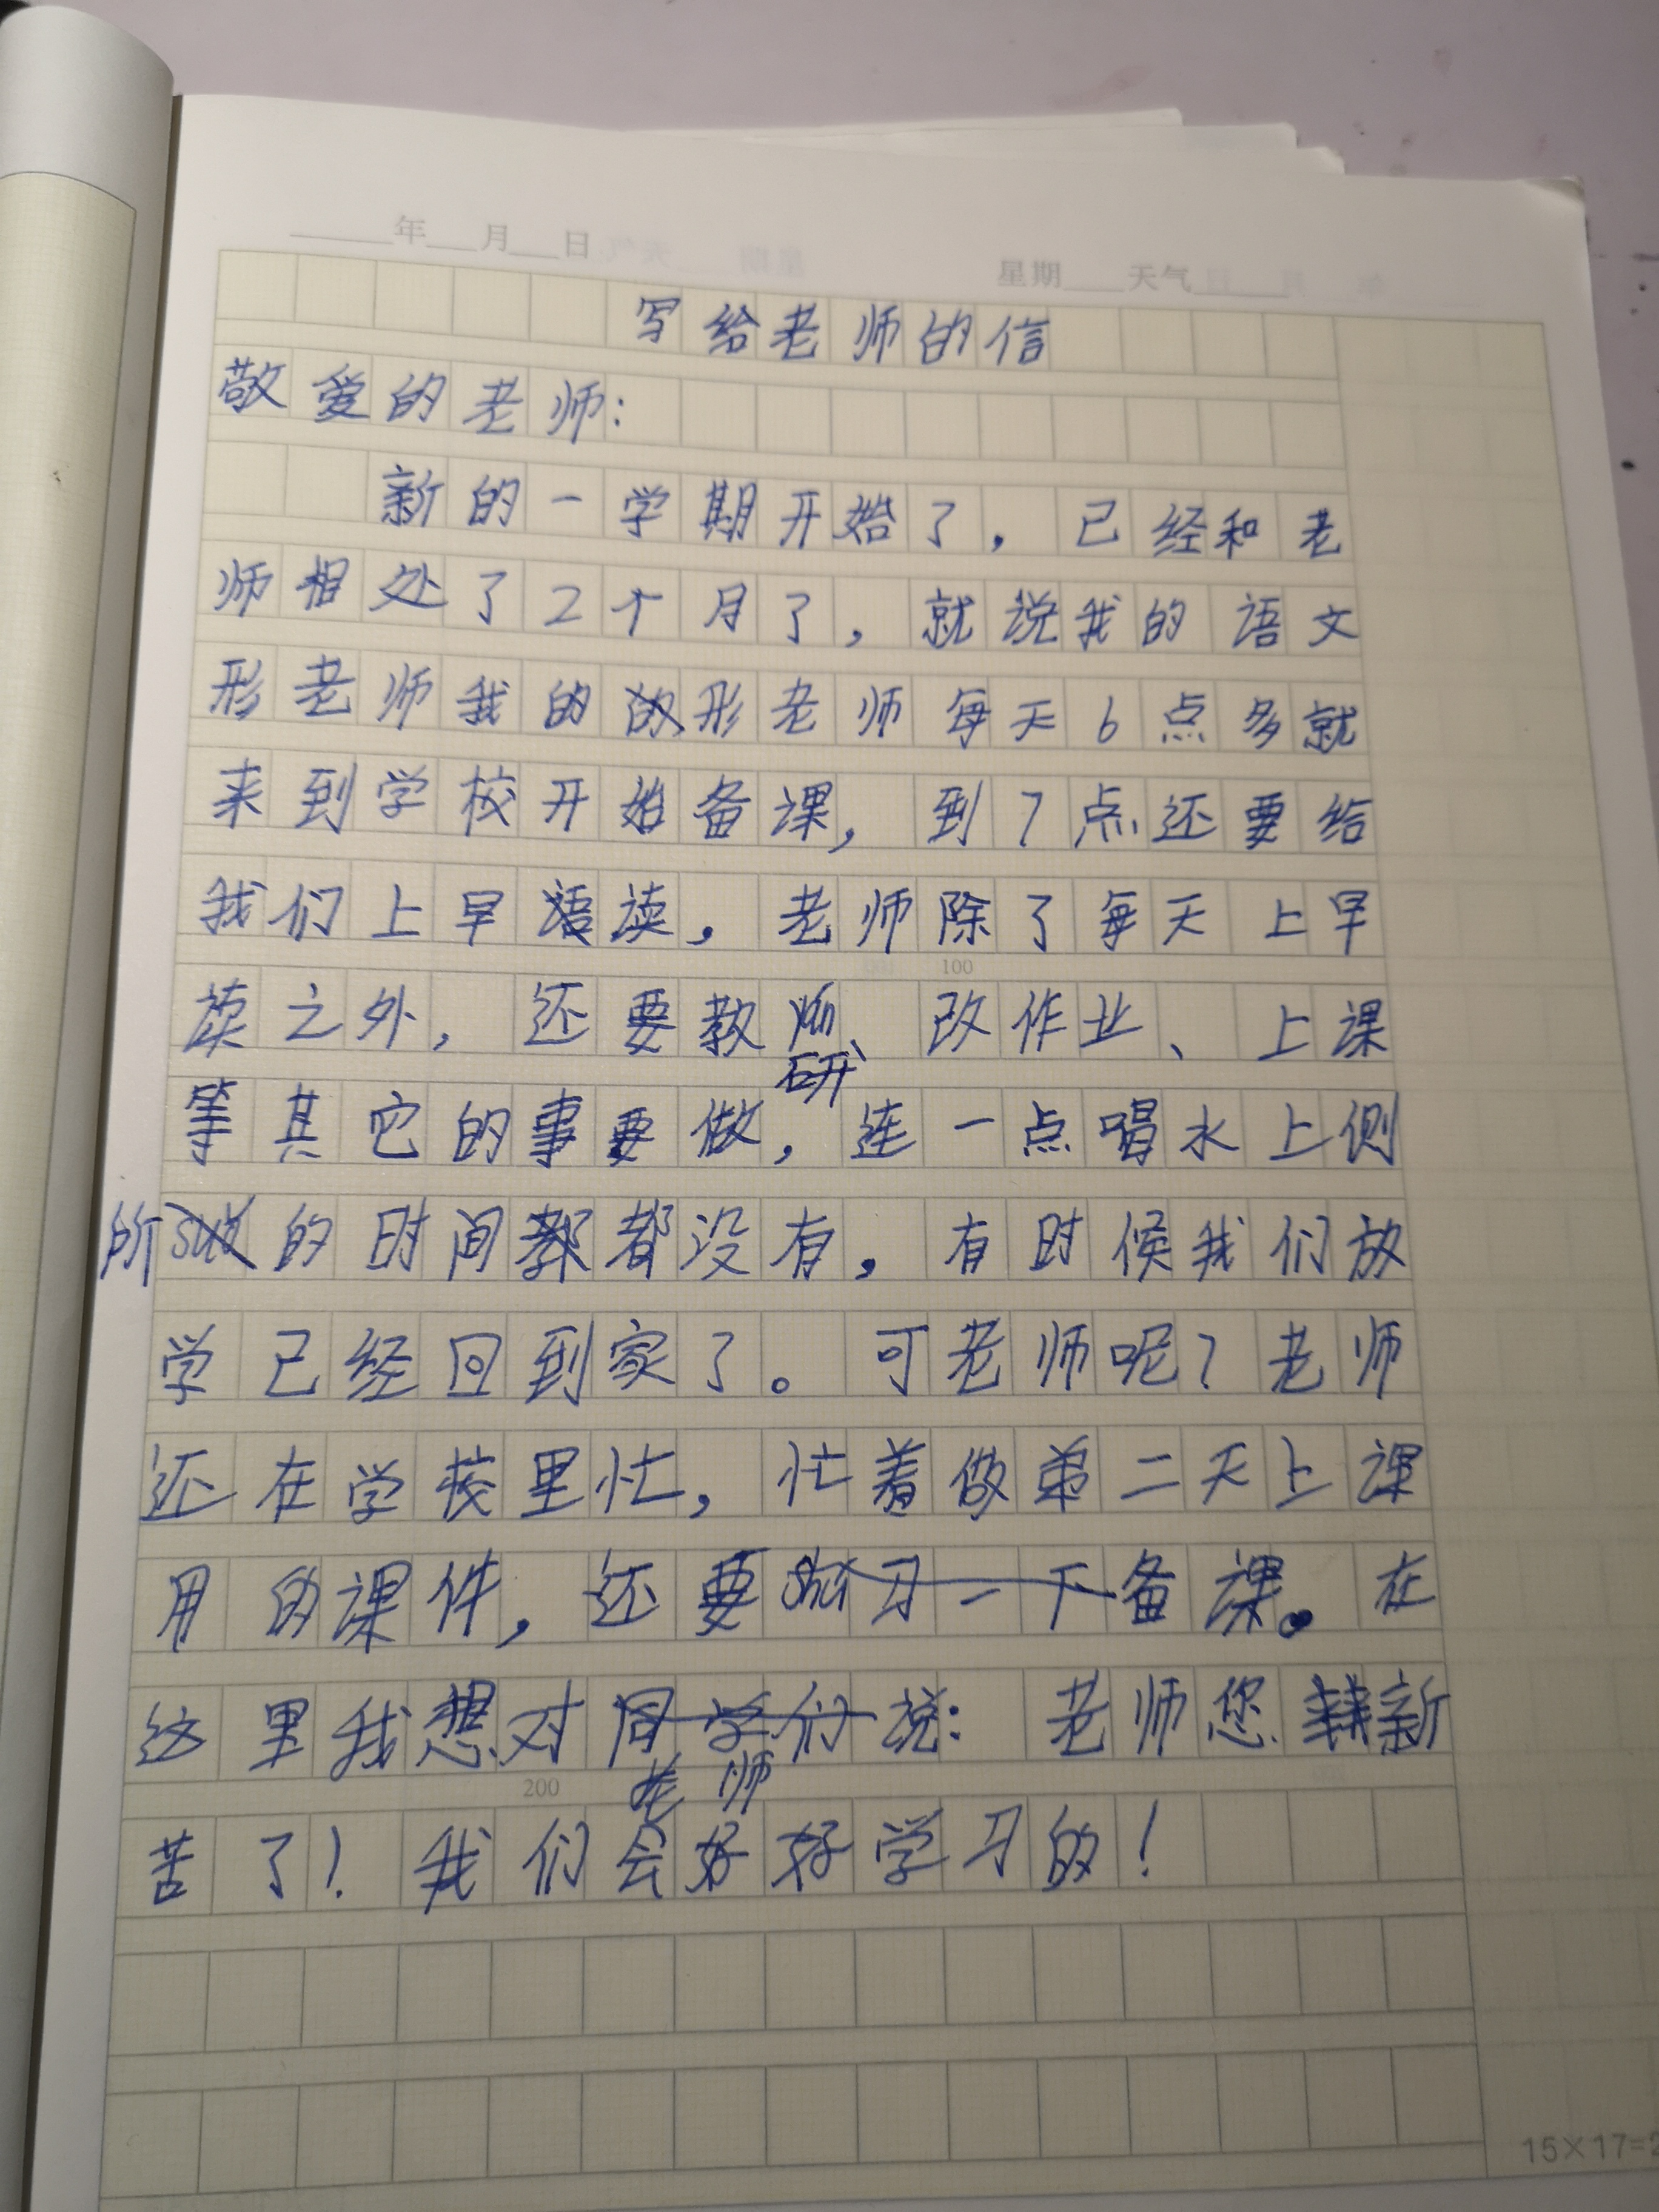 年 月 日
星期 天气
写给老师的信
敬爱的老师：
新的一学期开始了，已经和老
师相处了2个月了，就说我的语文
形老师我的形老师每天6点多就
来到学校开始备课，到7点还要给
我们上早读，老师除了每天上早
100
读之外，还要教研、改作业、上课
等其它的事要做，连一点喝水上侧
所的时间都没有，有时候我们放
学已经回到家了。可老师呢？老师
还在学校里忙，忙着做第二天上课
用的课件，还要备课。在
这里我想对老师说：老师您新
200
苦了！我们会好好学习的！
15×17=2